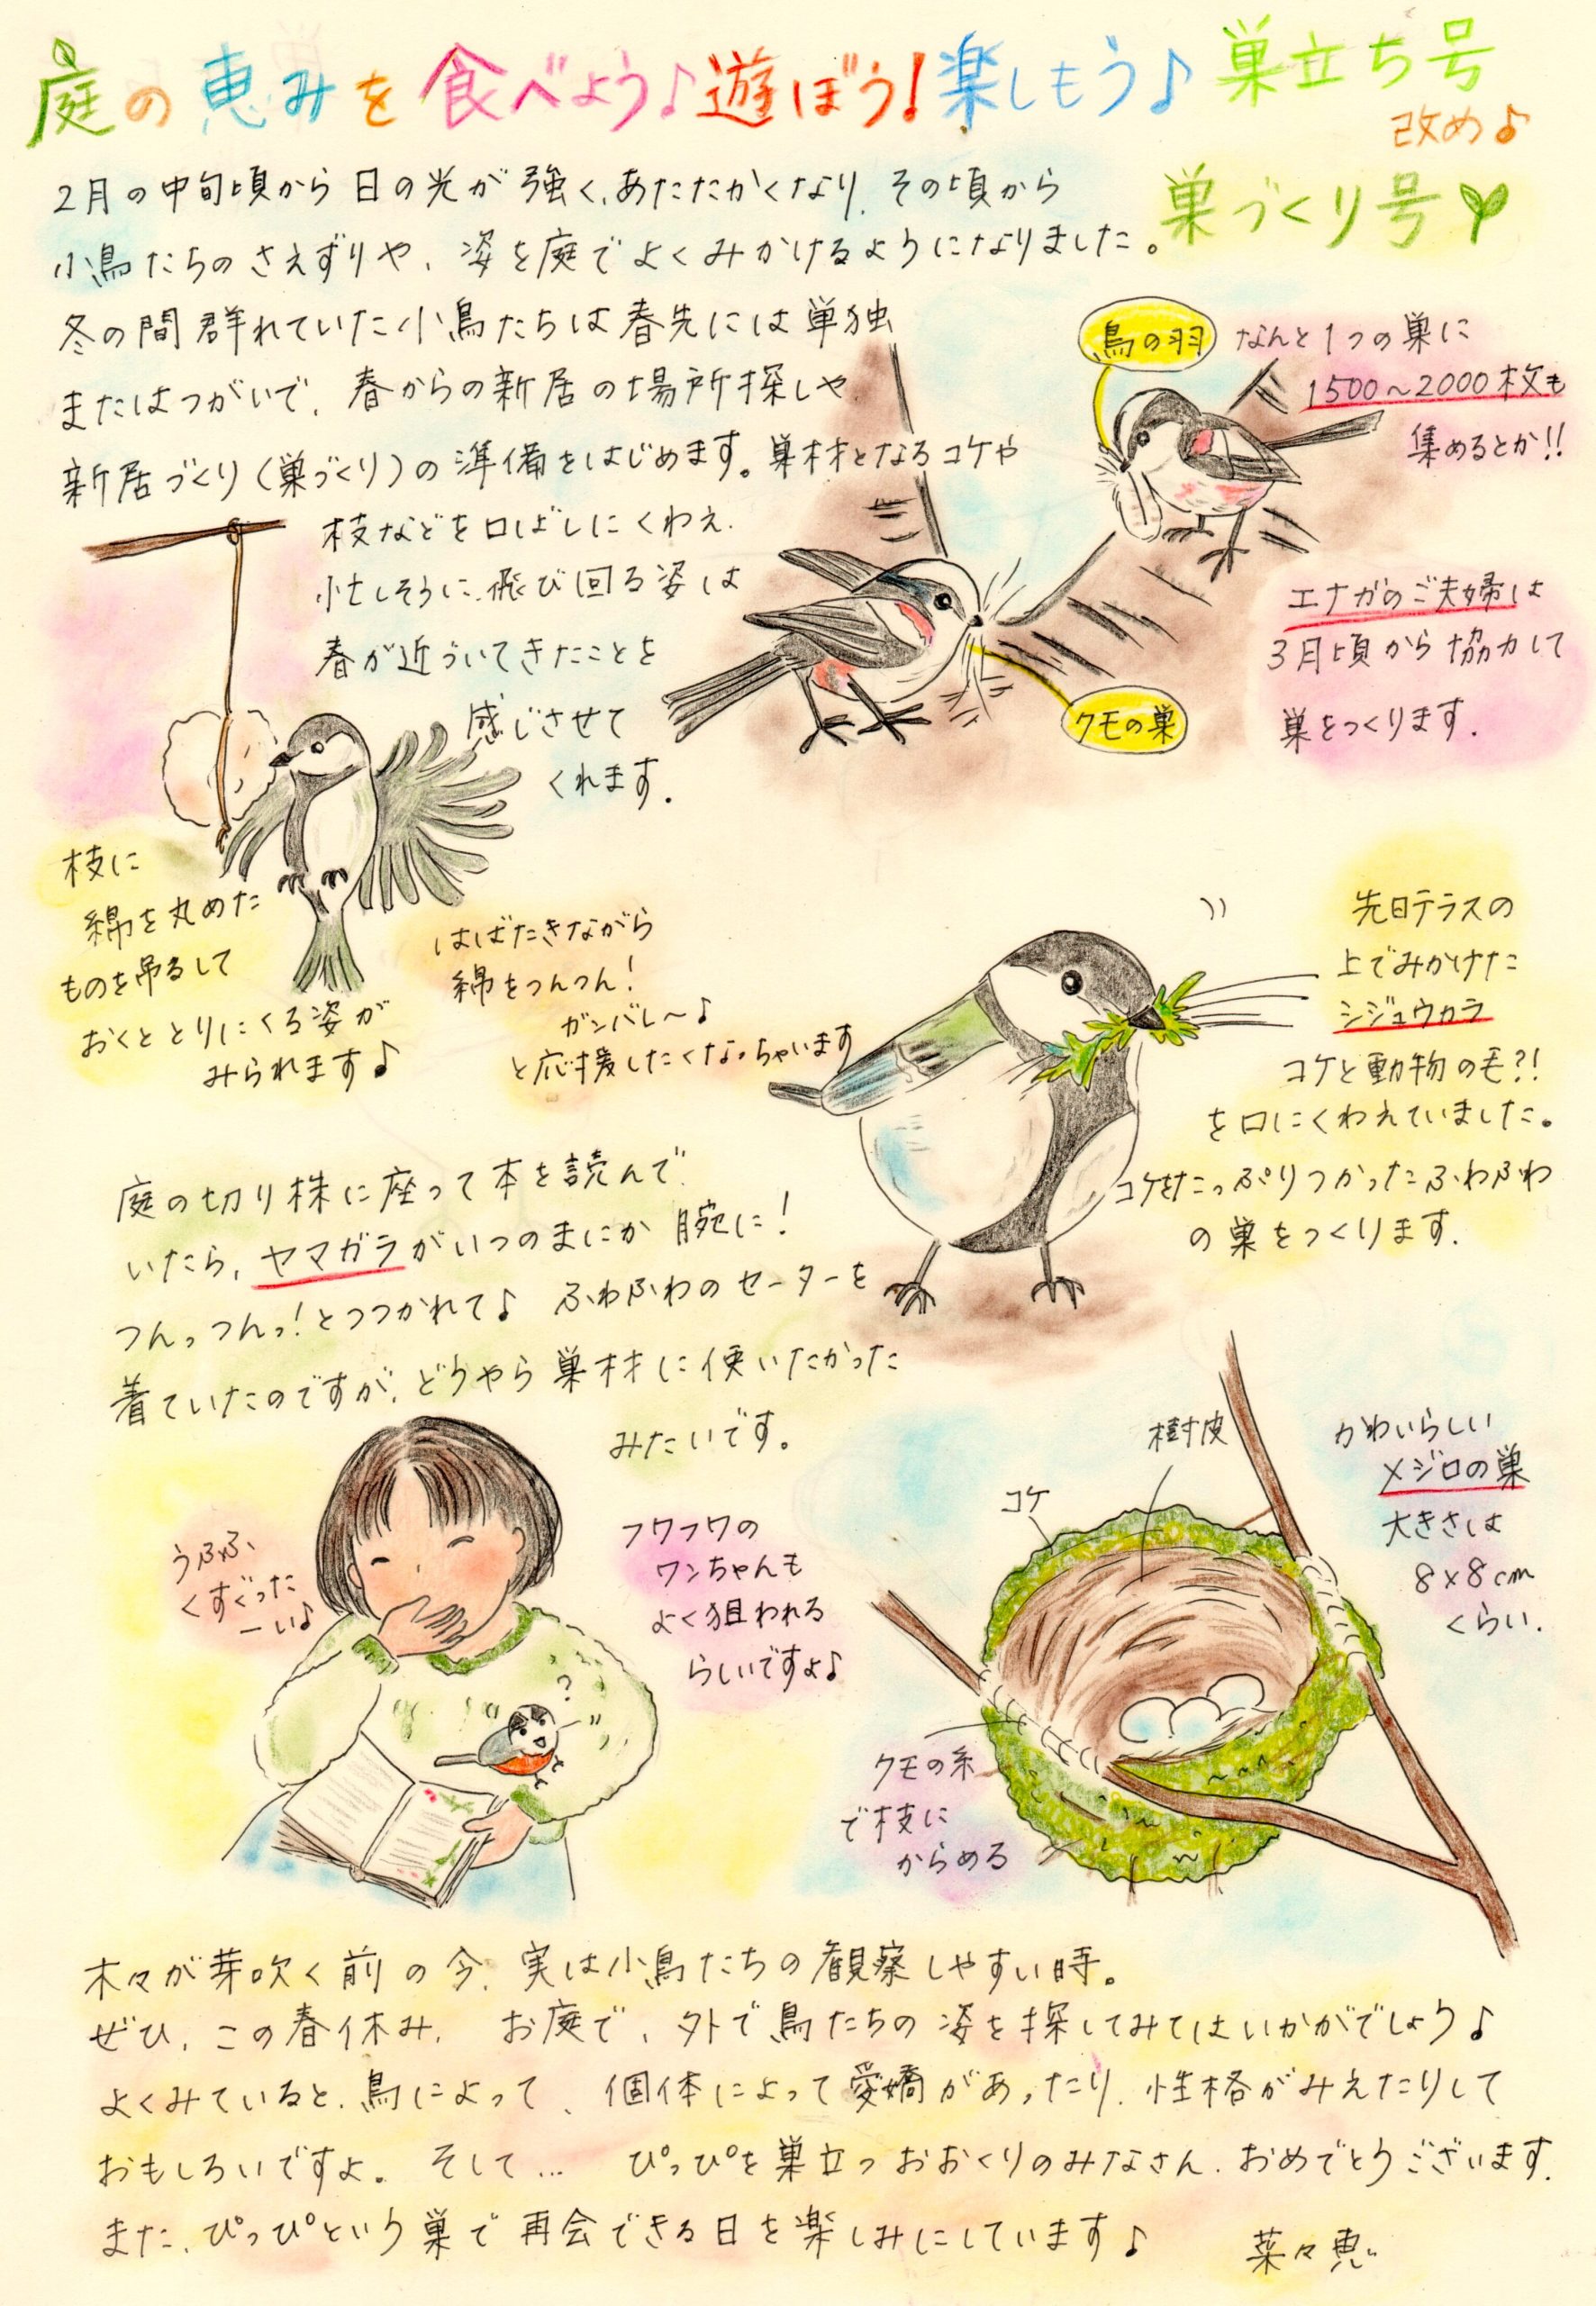 庭の恵みを食べよう♪遊ぼう！楽しもう♪巣立ち号
改め♪
巣づくり号
2月の中旬頃から日の光が強く、あたたかくなり、その頃から
小鳥たちのさえずりや、姿を庭でよくみかけるようになりました。
冬の間群れていた小鳥たちは春先には単独
またはつがいで、春からの新居の場所探しや
新居づくり(巣づくり)の準備をはじめます。巣材となるコケや
枝などを口ばしにくわえ、
忙しそうに、飛び回る姿は
春が近づいてきたことを
感じさせて
くれます。
鳥の羽
なんと1つの巣に
1500～2000枚も
集めるとか!!
エナガのご夫婦は
3月頃から協力して
巣をつくります。
クモの巣
枝に
綿を丸めた
ものを吊るして
おくととりにくる姿が
みられます♪
はばたきながら
綿をつんつん！
ガンバレ～♪
と応援したくなっちゃいます
先日テラスの
上でみかけた
シジュウカラ
コケと動物の毛?!
を口にくわえていました。
コケをたっぷりつかったふわふわ
の巣をつくります。
庭の切り株に座って本を読んで
いたら、ヤマガラがいつのまにか腕に！
つんっつんっ！とつつかれて♪ ふわふわのセーターを
着ていたのですが、どうやら巣材に使いたかった
みたいです。
うふふ、
くすぐった
ーい♪
フワフワの
ワンちゃんも
よく狙われる
らしいですよ♪
?
樹皮
コケ
かわいらしい
メジロの巣
大きさは
8×8cm
くらい.
クモの糸
で枝に
からめる
木々が芽吹く前の今、実は小鳥たちの観察しやすい時。
ぜひ、この春休み、お庭で、外で鳥たちの姿を探してみてはいかがでしょう♪
よくみていると、鳥によって、個体によって愛嬌があったり、性格がみえたりして
おもしろいですよ。そして… ぴっぴを巣立つおおくりのみなさん、おめでとうございます.
また、ぴっぴという巣で再会できる日を楽しみにしています♪
菜々恵